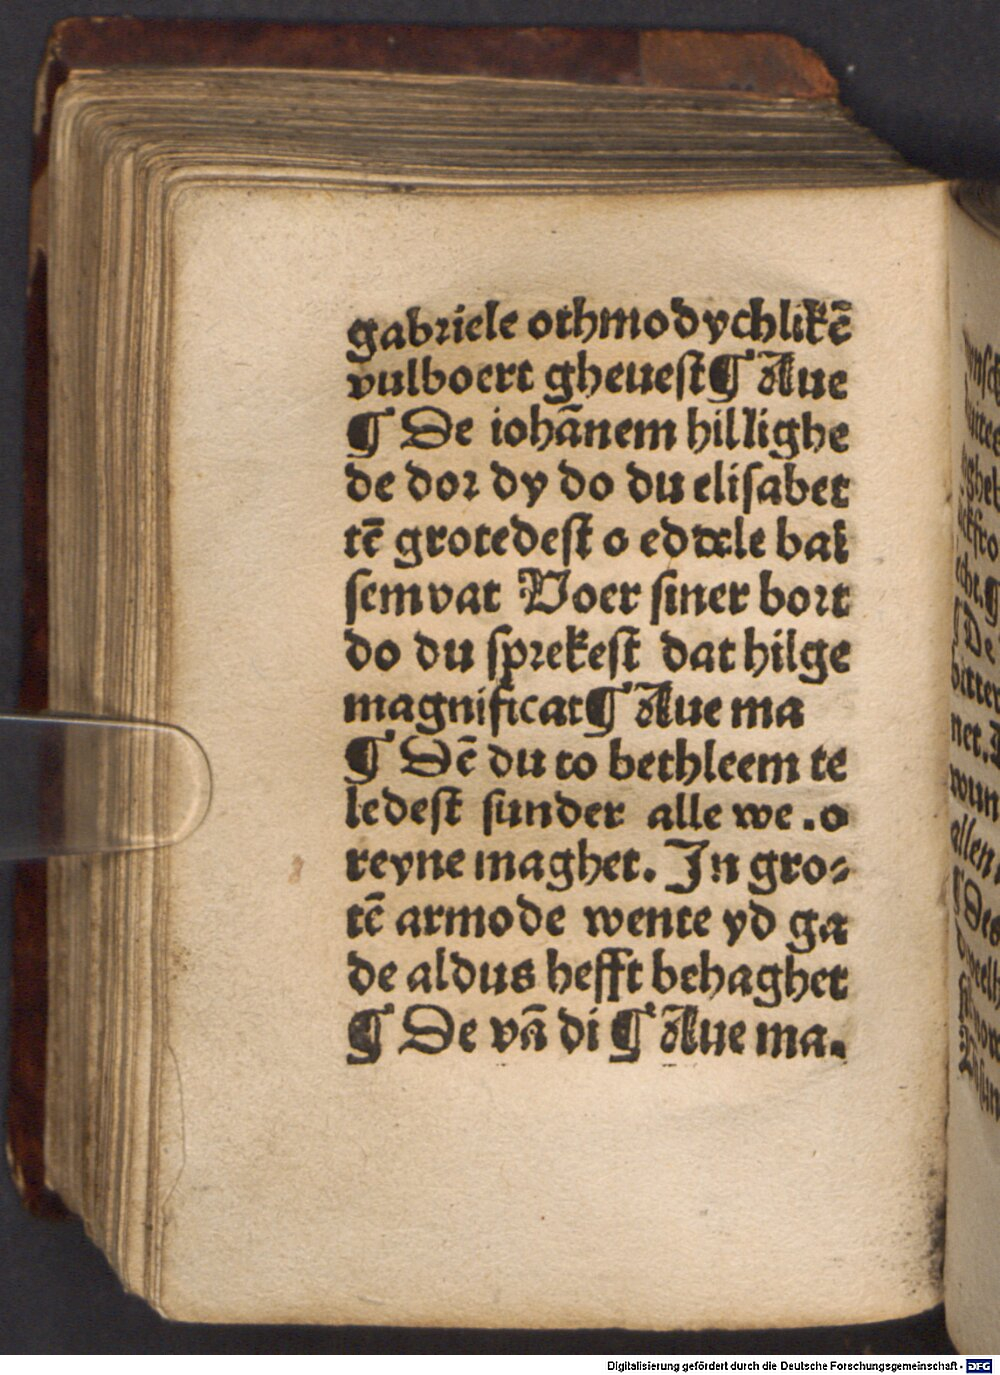 gabriele othmodychlikē
vulboert gheuest¶ Aue
¶ De iohānem hillighe
de dor dy do du elisabet
tē grotedest o edæle bal
semvat Voer siner bort
do du sprekest dat hilge
magnificat¶ Aue ma
¶ Dē du to bethleem te
ledest sunder alle we .o
reyne maghet. In gro⸗
tē armode wente yd ga
de aldus hefft behaghet
¶ De vā di ¶ Aue ma.
Digitalisierung gefördert durch die Deutsche Forschungsgemeinschaft - DFG